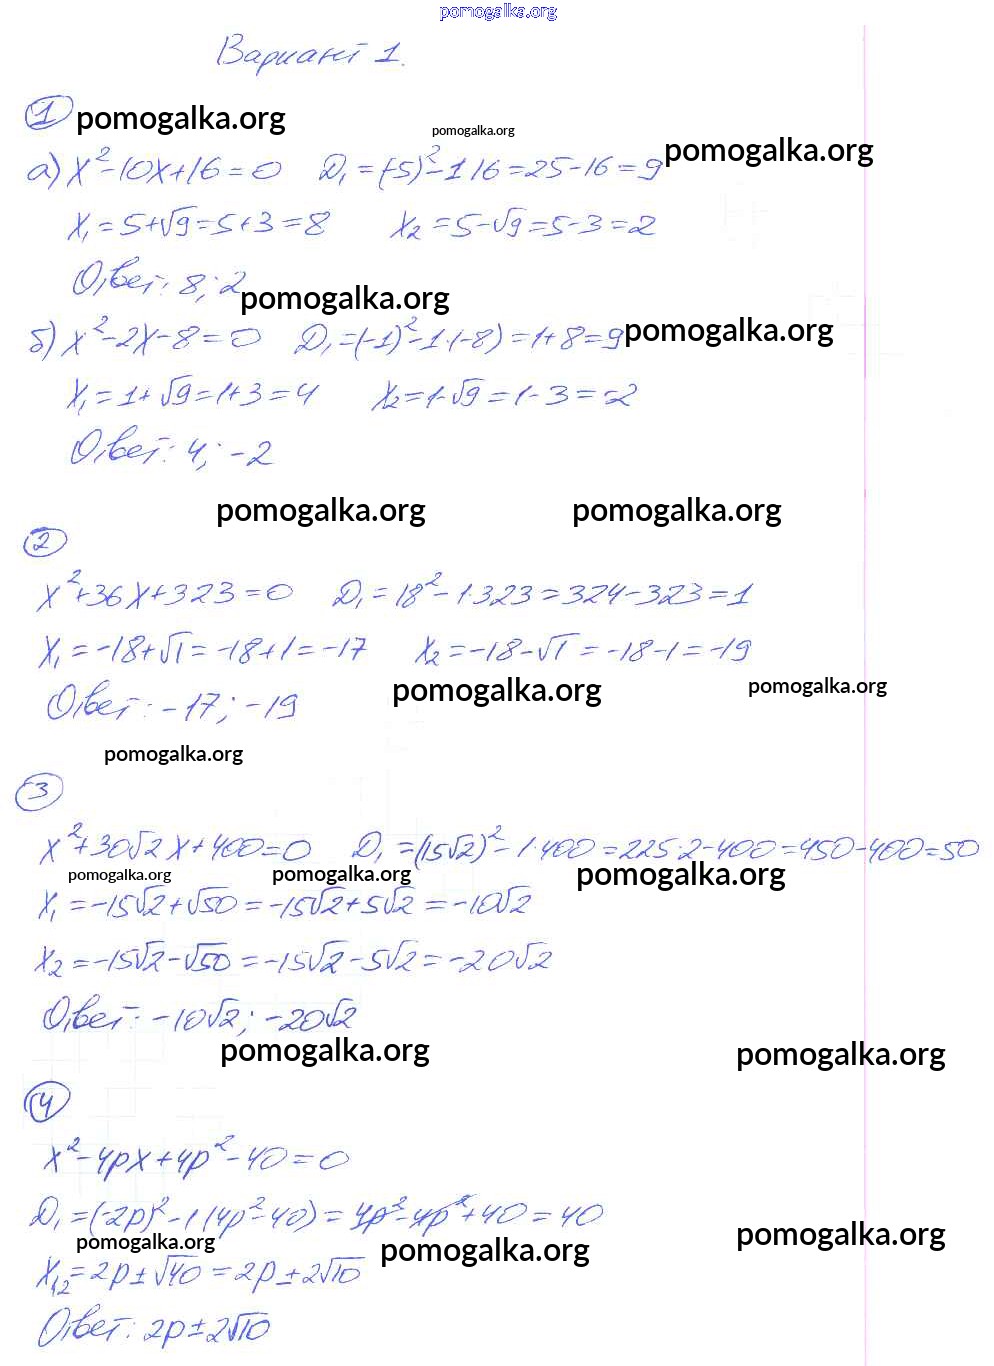 pomogalka.org
Вариант 1.
1 pomogalka.org
pomogalka.org
а) x²-10x+16=0 D₁=(-5)²-1·16=25-16=9 pomogalka.org
x₁=5+√9=5+3=8 x₂=5-√9=5-3=2
Ответ: 8; 2 pomogalka.org
б) x²-2x-8=0 D₁=(-1)²-1·(-8)=1+8=9 pomogalka.org
x₁=1+√9=1+3=4 x₂=1-√9=1-3=-2
Ответ: 4; -2
pomogalka.org pomogalka.org
2
x²+36x+323=0 D₁=18²-1·323=324-323=1
x₁=-18+√1=-18+1=-17 x₂=-18-√1=-18-1=-19
Ответ: -17; -19 pomogalka.org pomogalka.org
pomogalka.org
3
x²+30√2x+400=0 D₁=(15√2)²-1·400=225·2-400=450-400=50
pomogalka.org pomogalka.org pomogalka.org
x₁=-15√2+√50=-15√2+5√2=-10√2
x₂=-15√2-√50=-15√2-5√2=-20√2
Ответ: -10√2; -20√2
pomogalka.org pomogalka.org
4
x²-4px+4p²-40=0
D₁=(-2p)²-1(4p²-40)=4p²-4p²+40=40
pomogalka.org pomogalka.org pomogalka.org
x₁,₂=2p±√40=2p±2√10
Ответ: 2p±2√10